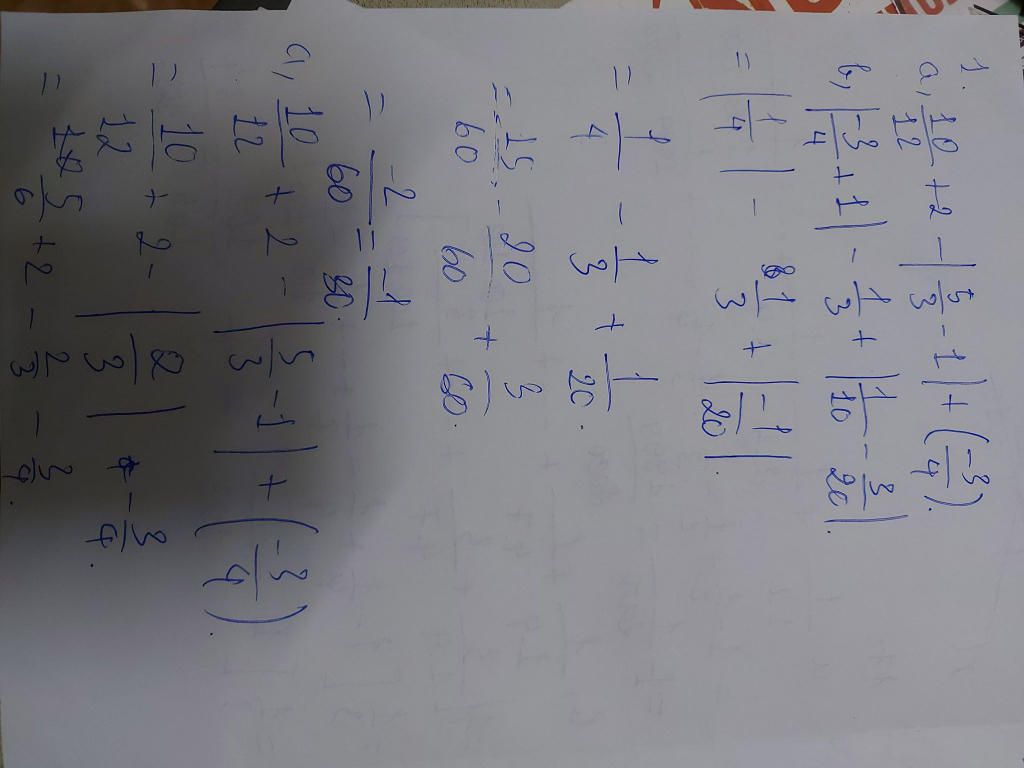 1.
a, 10/12 + 2 - |5/3 - 1| + (-3/4).
b, |-3/4 + 1| - 1/3 + |1/10 - 3/20|.
= |1/4| - 1/3 + |-1/20|
= 1/4 - 1/3 + 1/20.
= 15/60 - 20/60 + 3/60.
= -2/60 = -1/30.
a, 10/12 + 2 - |5/3 - 1| + (-3/4).
= 10/12 + 2 - |2/3| - 3/4.
= 5/6 + 2 - 2/3 - 3/4.